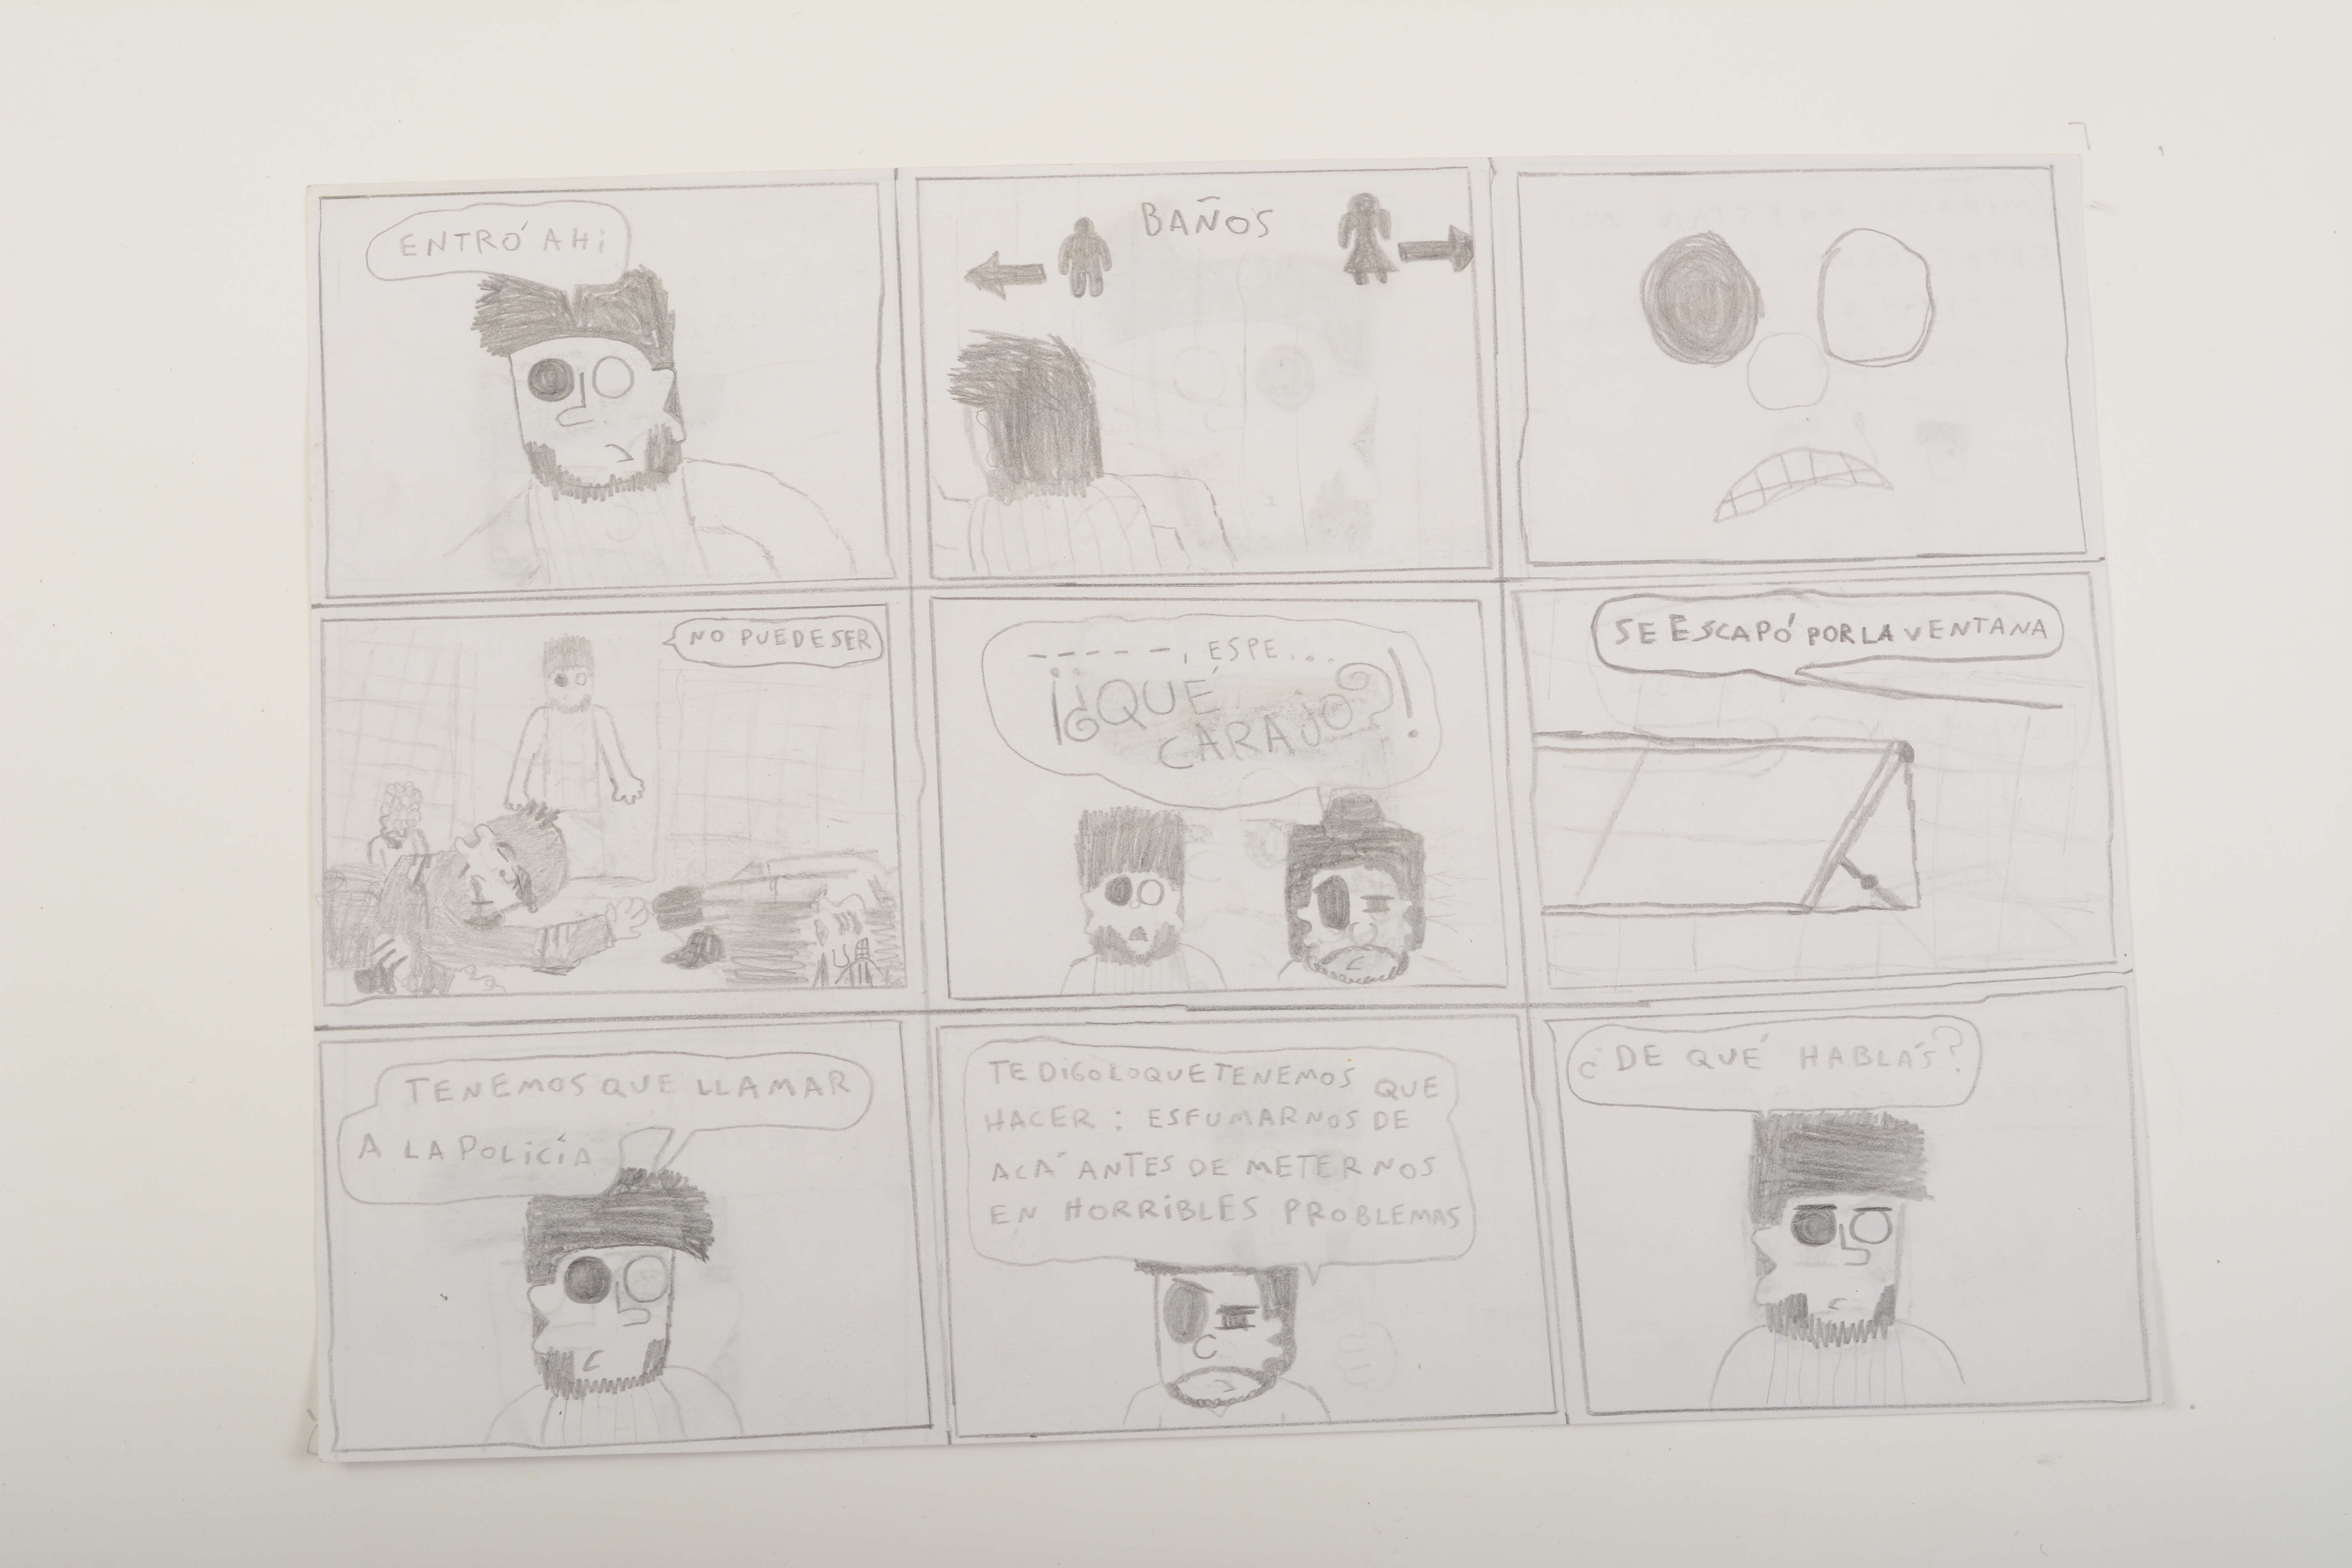 ENTRÓ AHÍ
BAÑOS
NO PUEDE SER
– – – – –, ESPE...
¡¿QUÉ
CARAJO?!
SE ESCAPÓ POR LA VENTANA
TENEMOS QUE LLAMAR
A LA POLICÍA
TE DIGO LO QUE TENEMOS QUE
HACER: ESFUMARNOS DE
ACÁ ANTES DE METERNOS
EN HORRIBLES PROBLEMAS
¿DE QUÉ HABLÁS?